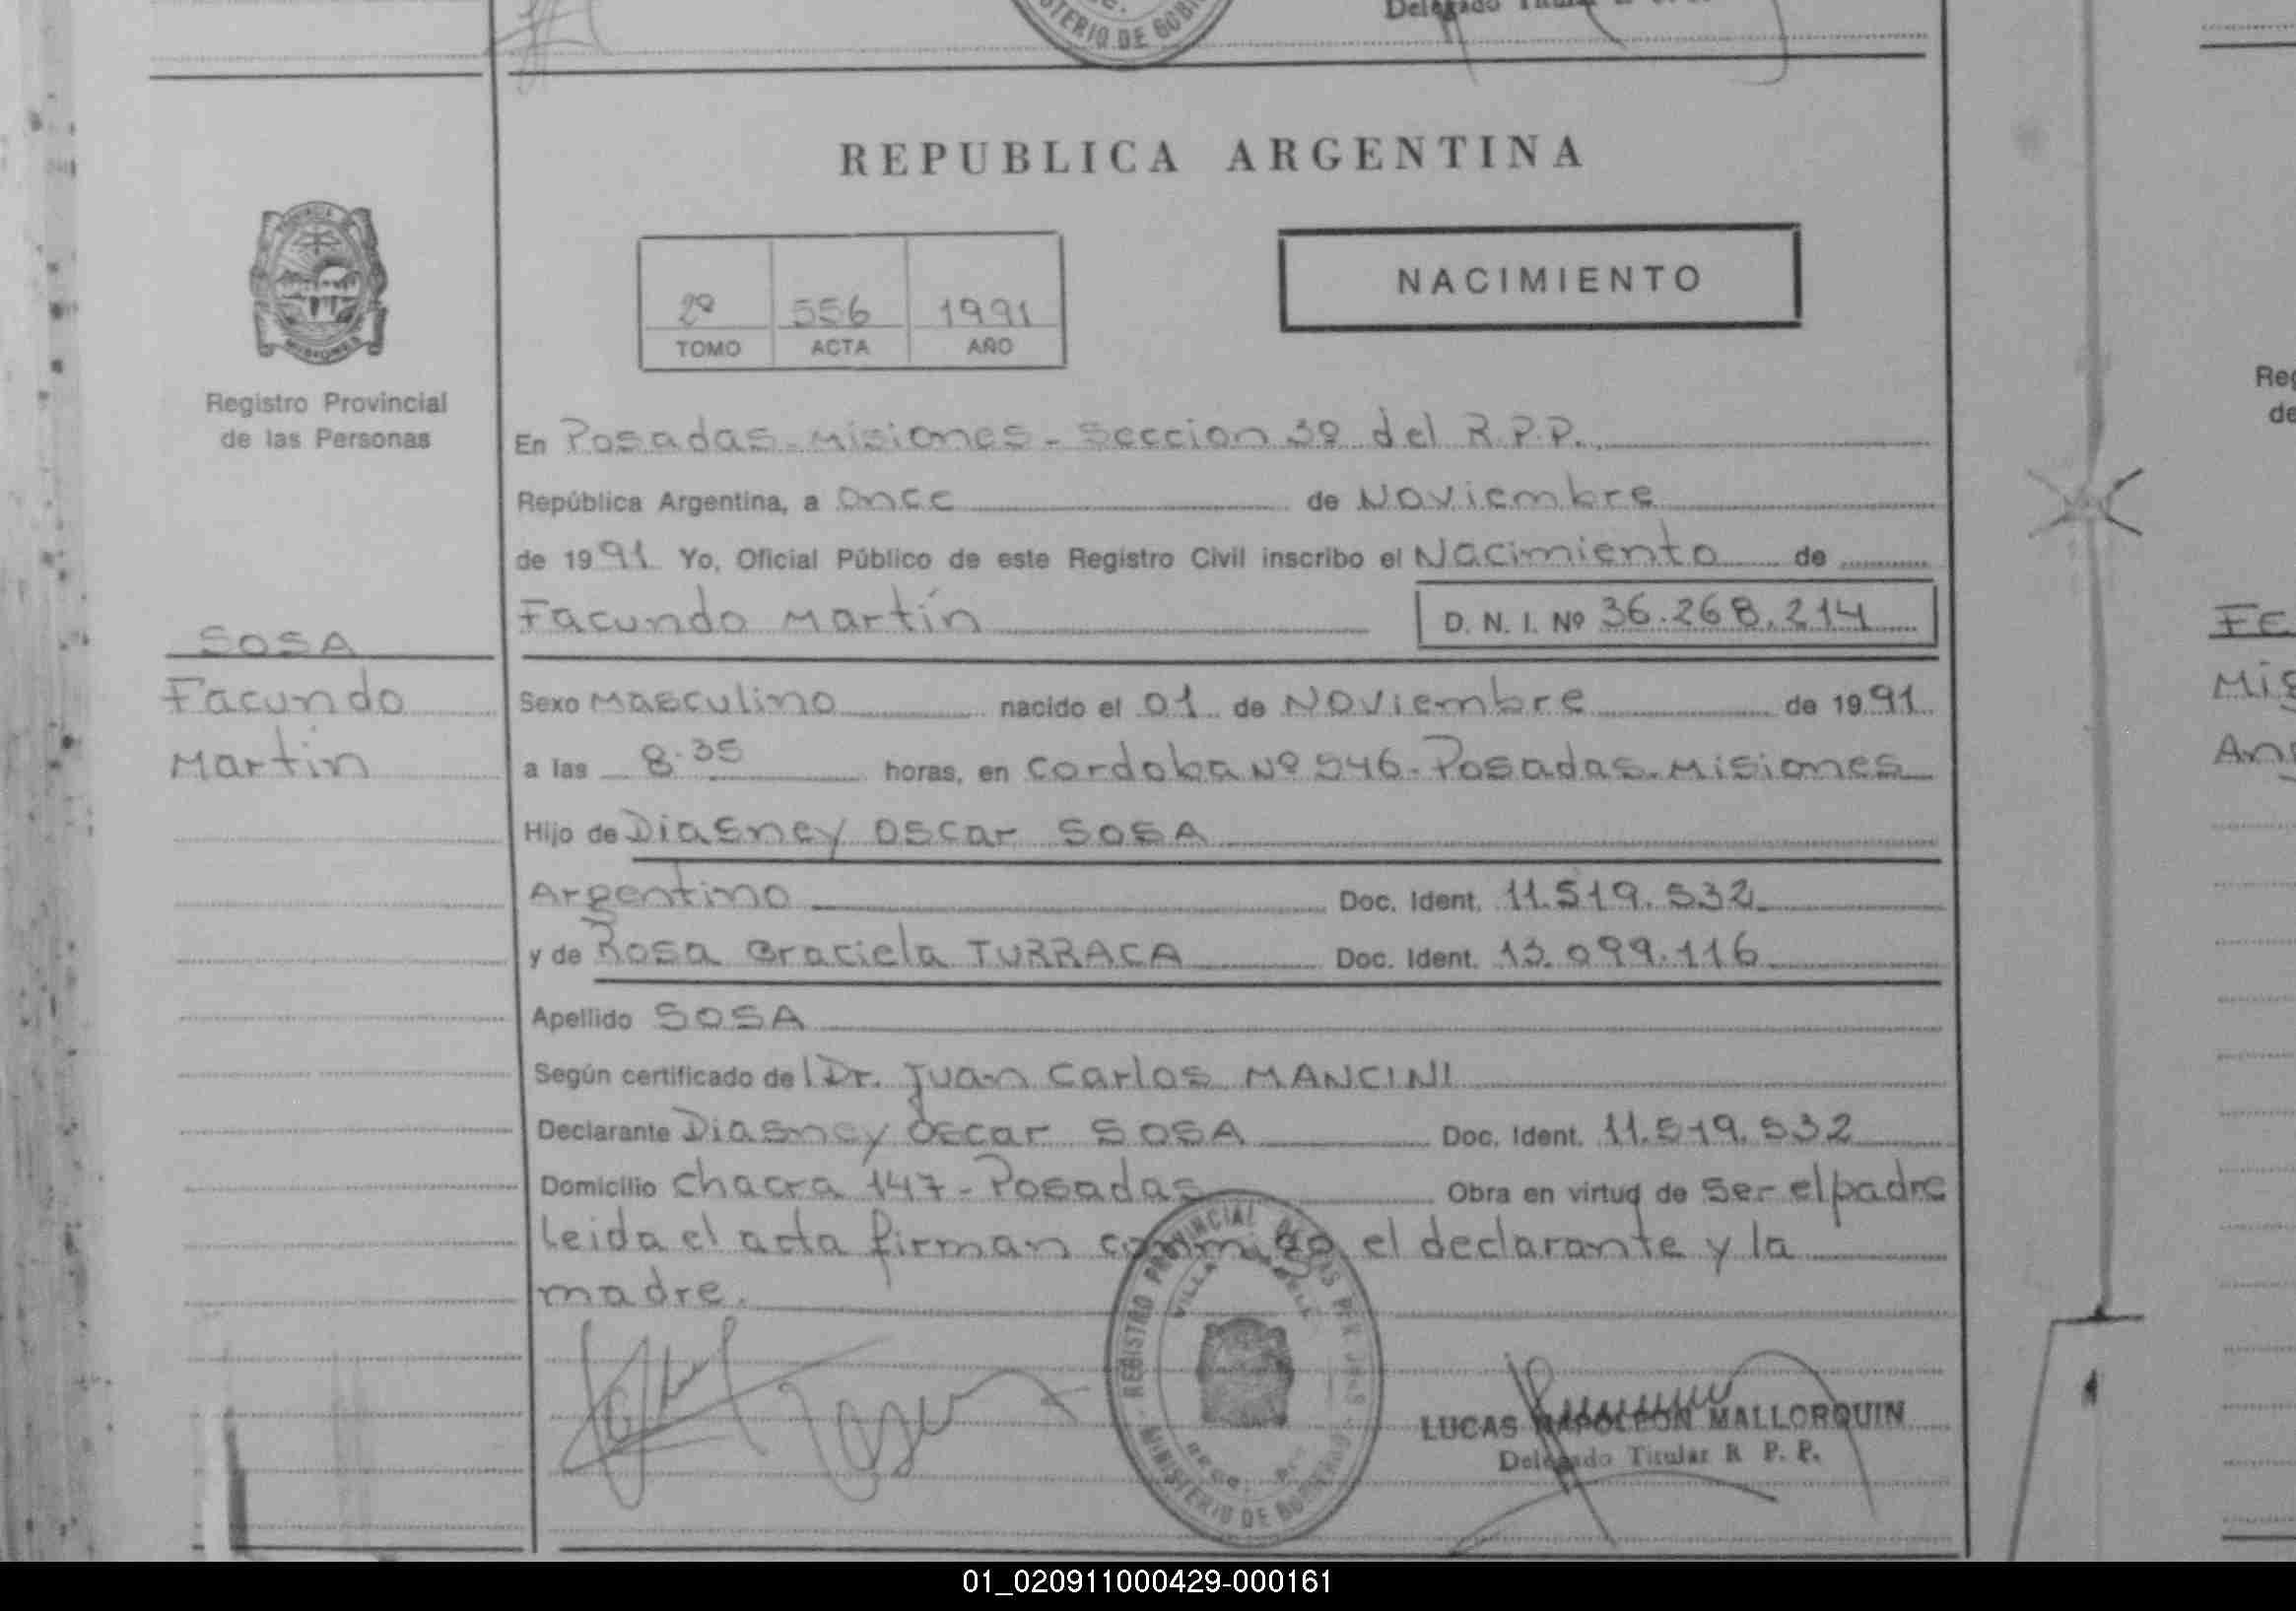 Delegado Titular
MINISTERIO DE GOBI
REPUBLICA ARGENTINA
NACIMIENTO
2º 556 1991
TOMO ACTA AÑO
Registro Provincial
de las Personas
En Posadas - Misiones - Seccion 3º del R.P.P.
República Argentina, a once de Noviembre
de 1991 Yo, Oficial Público de este Registro Civil inscribo el Nacimiento de
Facundo Martín D. N. I. Nº 36.268.214
SOSA
Facundo
Martin
Sexo Masculino nacido el 01 de Noviembre de 1991
a las 8.35 horas, en Cordoba Nº 946 - Posadas - Misiones
Hijo de Diasney Oscar SOSA
Argentino Doc. Ident. 11.519.532
y de Rosa Graciela TURRACA Doc. Ident. 13.099.116
Apellido SOSA
Según certificado del Dr. Juan Carlos MANCINI
Declarante Diasney Oscar SOSA Doc. Ident. 11.519.532
Domicilio Chacra 147 - Posadas Obra en virtud de ser el padre
leida el acta firman conmigo el declarante y la
madre.
REGISTRO PROVINCIAL DE LAS PERSONAS
MINISTERIO DE GOBIERNO
LUCAS NAPOLEON MALLORQUIN
Delegado Titular R P. P.
Reg
de
FE
Mig
Ang
01_020911000429-000161